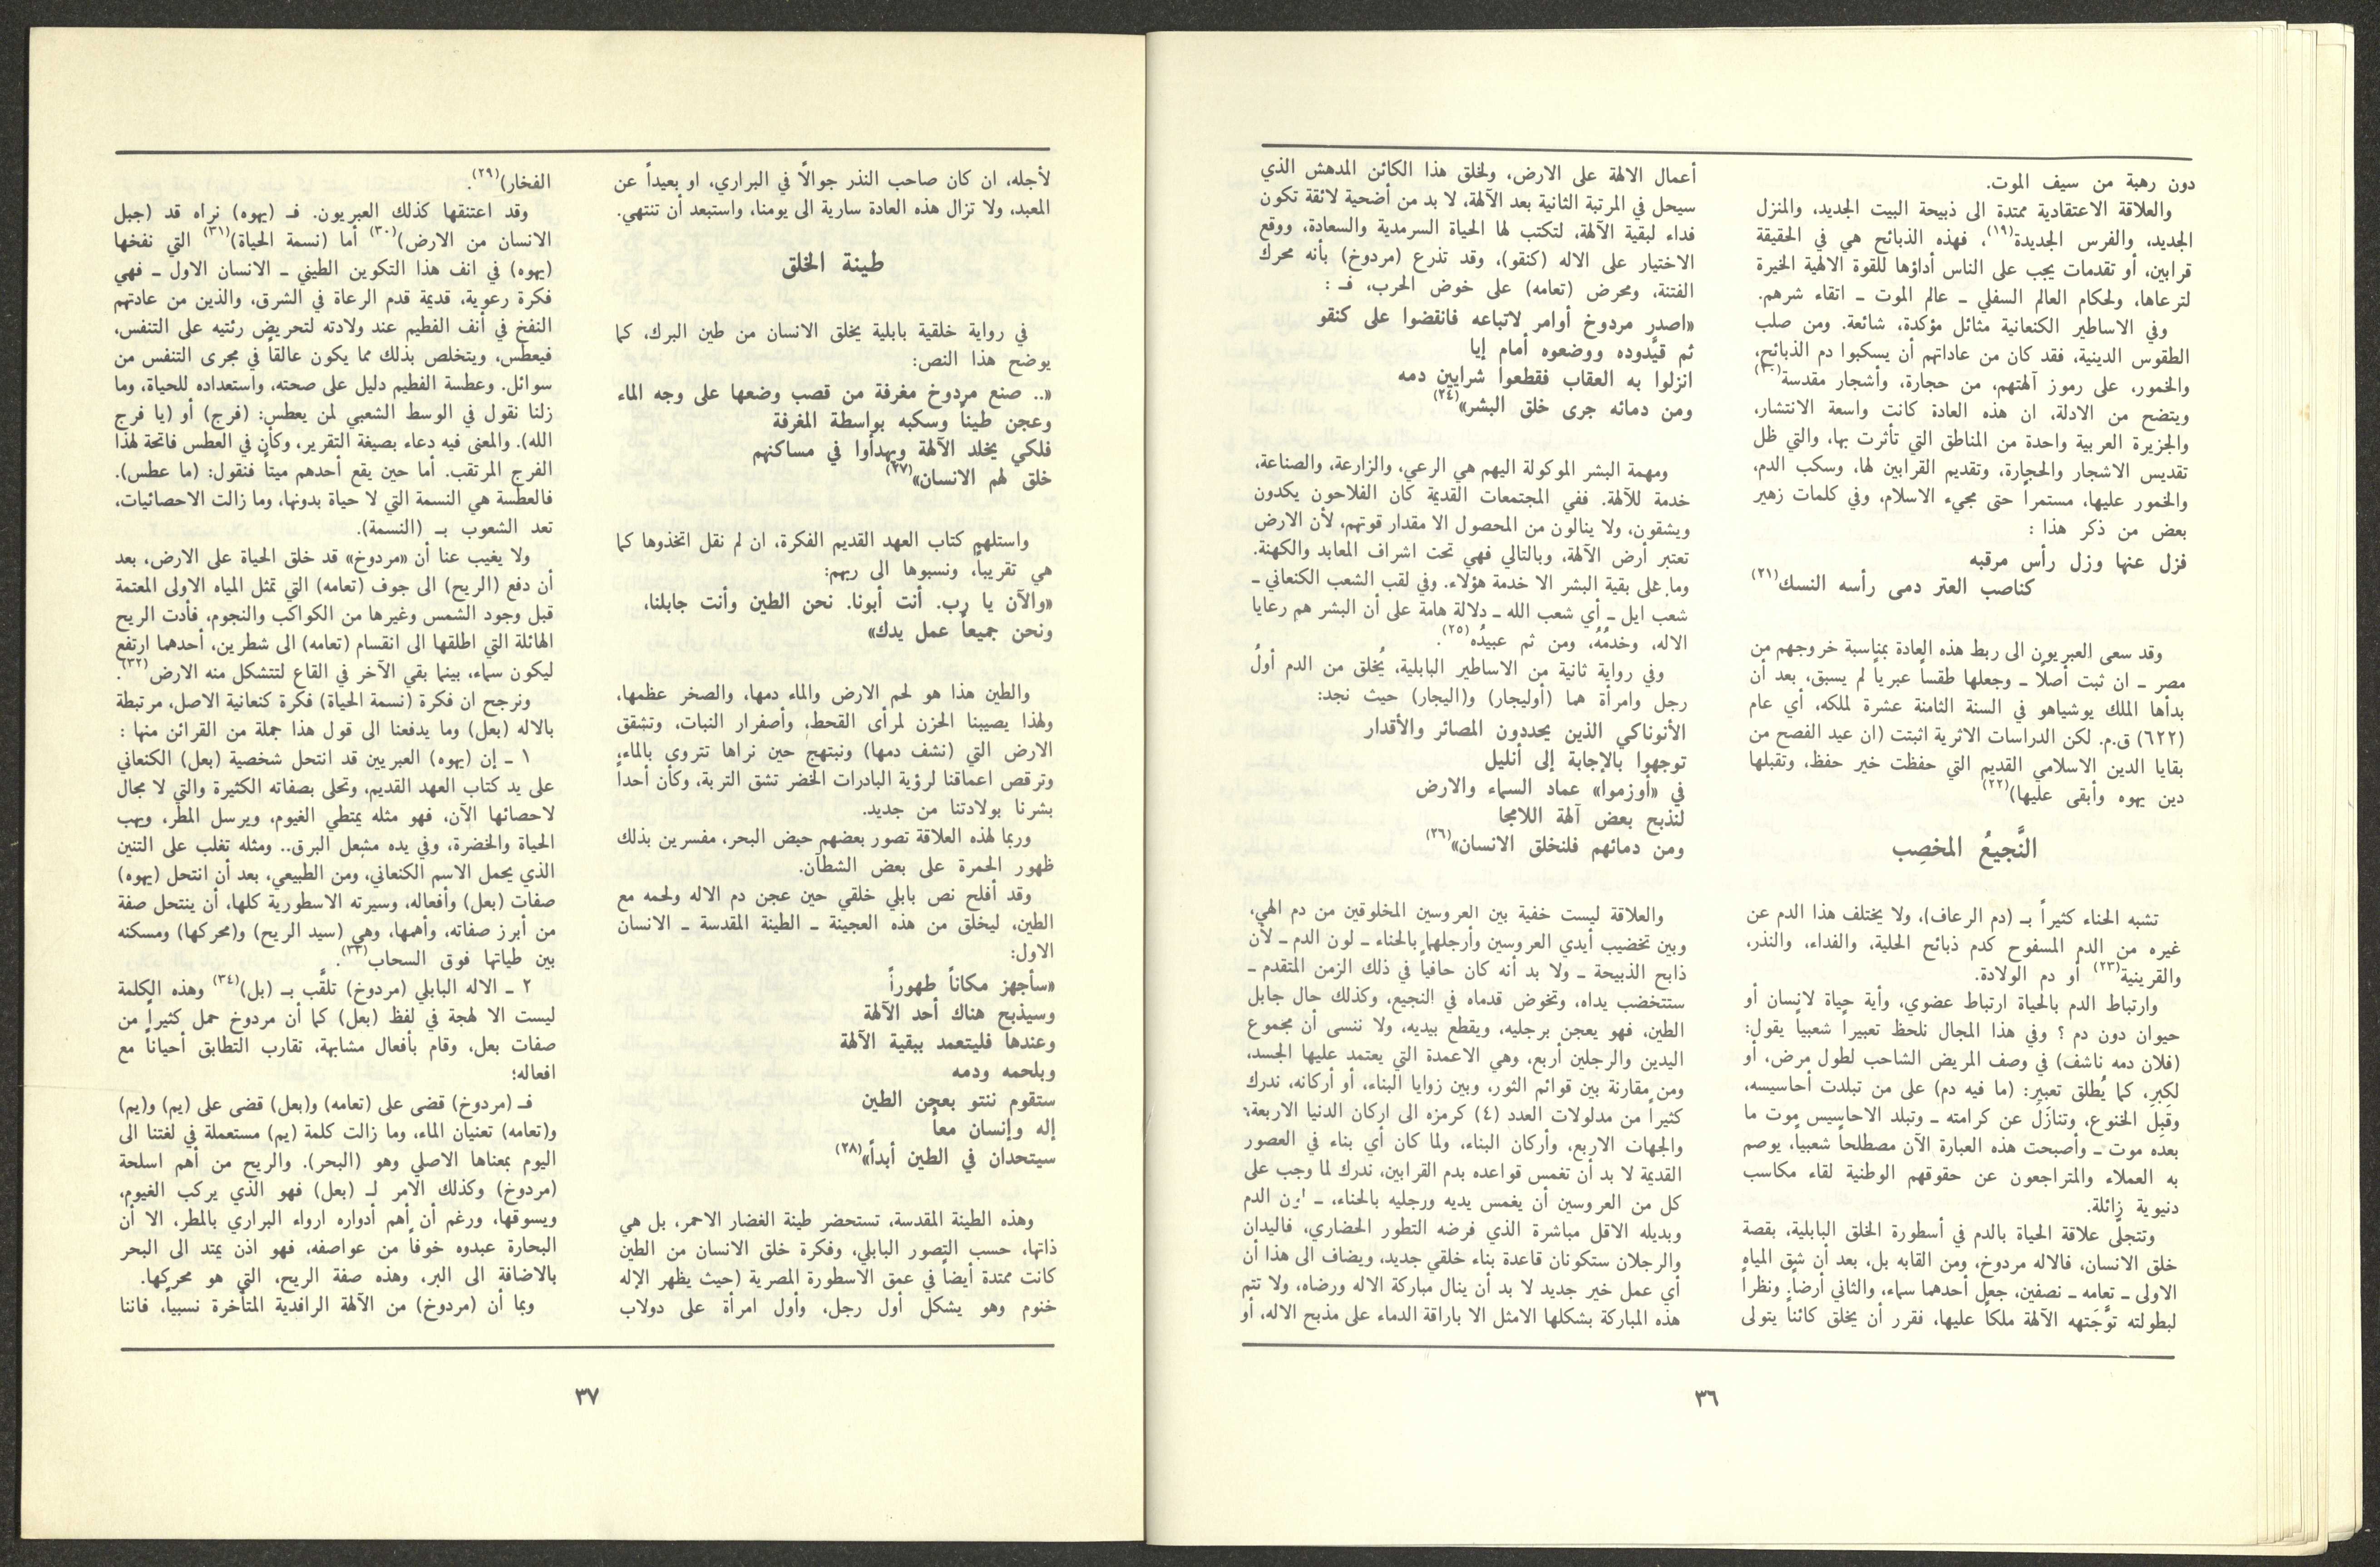 دون رهبة من سيف الموت.
والعلاقة الاعتقادية ممتدة الى ذبيحة البيت الجديد، والمنزل
الجديد، والفرس الجديدة(١٩)، فهذه الذبائح هي في الحقيقة
قرابين، أو تقدمات يجب على الناس أداؤها للقوة الالهية الخيرة
لترعاها، ولحكام العالم السفلي ـ عالم الموت ـ اتقاء شرهم.
وفي الاساطير الكنعانية مثائل مؤكدة، شائعة. ومن صلب
الطقوس الدينية، فقد كان من عاداتهم أن يسكبوا دم الذبائح،
والخمور، على رموز آلهتهم، من حجارة، وأشجار مقدسة(٢٠)
ويتضح من الادلة، ان هذه العادة كانت واسعة الانتشار،
والجزيرة العربية واحدة من المناطق التي تأثرت بها، والتي ظل
تقديس الاشجار والحجارة، وتقديم القرابين لها، وسكب الدم،
والخمور عليها، مستمراً حتى مجيء الاسلام، وفي كلمات زهير
بعض من ذكر هذا :
فزل عنها وزل رأس مرقبه
كناصب العتر دمى رأسه النسك(٢١)
وقد سعى العبريون الى ربط هذه العادة بمناسبة خروجهم من
مصر ـ ان ثبت أصلاً ـ وجعلها طقساً عبرياً لم يسبق، بعد أن
بدأها الملك يوشياهو في السنة الثامنة عشرة لملكه، أي عام
(٦٢٢) ق.م. لكن الدراسات الاثرية اثبتت (ان عيد الفصح من
بقايا الدين الاسلامي القديم التي حفظت خير حفظ، وتقبلها
دين يهوه وأبقى عليها)(٢٢)
النَّجيعُ المخصِب
تشبه الحناء كثيراً بـ (دم الرعاف)، ولا يختلف هذا الدم عن
غيره من الدم المسفوح كدم ذبائح الحلية، والفداء، والنذر،
والقرينية(٢٣) أو دم الولادة.
وارتباط الدم بالحياة ارتباط عضوي، وأية حياة لانسان أو
حيوان دون دم ؟ وفي هذا المجال نلحظ تعبيراً شعبياً يقول:
(فلان دمه ناشف) في وصف المريض الشاحب لطول مرض، أو
لكِبرِ، كما يُطلق تعبير: (ما فيه دم) على من تبلدت أحاسيسه،
وقبِلَ الخنوع، وتنازَلَ عن كرامته ـ وتبلد الاحاسيس موت ما
بعده موت ـ وأصبحت هذه العبارة الآن مصطلحاً شعبياً، يوصم
به العملاء والمتراجعون عن حقوقهم الوطنية لقاء مكاسب
دنيوية زائلة.
وتتجلّى علاقة الحياة بالدم في أسطورة الخلق البابلية، بقصة
خلق الانسان، فالاله مردوخ، ومن القابه بل، بعد أن شق المياه
الاولى ـ تعامه ـ نصفين، جعل أحدهما سماء، والثاني أرضاً. ونظراً
لبطولته توَّجَتهه الآلهة ملكاً عليها، فقرر أن يخلق كائناً يتولى
أعمال الالهة على الارض، ولخلق هذا الكائن المدهش الذي
سيحل في المرتبة الثانية بعد الآلهة، لا بد من أضحية لائقة تكون
فداء لبقية الآلهة، لتكتب لها الحياة السرمدية والسعادة، ووقع
الاختيار على الاله (كنقو)، وقد تذرع (مردوخ) بأنه محرك
الفتنة، ومحرض (تعامه) على خوض الحرب، فـ :
«اصدر مردوخ أوامر لاتباعه فانقضوا على كنقو
ثم قيَّدوده ووضعوه أمام إيا
انزلوا به العقاب فقطعوا شرايين دمه
ومن دمائه جرى خلق البشر»(٢٤)
ومهمة البشر الموكولة اليهم هي الرعي، والزارعة، والصناعة،
خدمة للآلهة. ففي المجتمعات القديمة كان الفلاحون يكدون
ويشقون، ولا ينالون من المحصول الا مقدار قوتهم، لأن الارض
تعتبر أرض الآلهة، وبالتالي فهي تحت اشراف المعابد والكهنة.
وما على بقية البشر الا خدمة هؤلاء. وفي لقب الشعب الكنعاني ـ
شعب ايل ـ أي شعب الله ـ دلالة هامة على أن البشر هم رعايا
الاله، وخدمُهُ، ومن ثم عبيدُه(٢٥).
وفي رواية ثانية من الاساطير البابلية، يُخلق من الدم أولُ
رجل وامرأة هما (أوليجار) و(اليجار) حيث نجد:
الأنوناكي الذين يحددون المصائر والأقدار
توجهوا بالإجابة إلى أنليل
في «أوزموا» عماد السماء والارض
لنذبح بعض آلهة اللامجا
ومن دمائهم فلنخلق الانسان»(٢٦)
والعلاقة ليست خفية بين العروسين المخلوقين من دم الهي،
وبين تخضيب أيدي العروسين وأرجلهما بالحناء ـ لون الدم ـ لأن
ذابح الذبيحة ـ ولا بد أنه كان حافياً في ذلك الزمن المتقدم ـ
ستتخضب يداه، وتخوض قدماه في النجيع، وكذلك حال جابل
الطين، فهو يعجن برجليه، ويقطع بيديه، ولا ننسى أن مجموع
اليدين والرجلين أربع، وهي الاعمدة التي يعتمد عليها الجسد،
ومن مقارنة بين قوائم الثور، وبين زوايا البناء، أو أركانه، ندرك
كثيراً من مدلولات العدد (٤) كرمزه الى اركان الدنيا الاربعة،
والجهات الاربع، وأركان البناء، ولما كان أي بناء في العصور
القديمة لا بد أن تغمس قواعده بدم القرابين، ندرك لما وجب على
كل من العروسين أن يغمس يديه ورجليه بالحناء، ـ لون الدم
وبديله الاقل مباشرة الذي فرضه التطور الحضاري، فاليدان
والرجلان ستكونان قاعدة بناء خلقي جديد، ويضاف الى هذا أن
أي عمل خير جديد لا بد أن ينال مباركة الاله ورضاه، ولا تتم
هذه المباركة بشكلها الامثل الا باراقة الدماء على مذبح الاله، أو
٣٦
لأجله، ان كان صاحب النذر جوالًا في البراري، او بعيداً عن
المعبد، ولا تزال هذه العادة سارية الى يومنا، واستبعد أن تنتهي.
طينة الخلق
في رواية خلقية بابلية يخلق الانسان من طين البرك، كما
يوضح هذا النص:
«.. صنع مردوخ مغرفة من قصب وضعها على وجه الماء
وعجن طيناً وسكبه بواسطة المغرفة
فلكي يخلد الآلهة ويهدأوا في مساكنهم
خلق لهم الانسان»(٢٧)
واستلهم كتاب العهد القديم الفكرة، ان لم نقل اتخذوها كما
هي تقريباً، ونسبوها الى ربهم:
«والآن يا رب. أنت أبونا. نحن الطين وأنت جابلنا،
ونحن جميعاً عمل يدك»
والطين هذا هو لحم الارض والماء دمها، والصخر عظمها،
ولهذا يصيبنا الحزن لمرأى القحط، وأصفرار النبات، وتشقق
الارض التي (نشف دمها) ونبتهج حين نراها تتروي بالماء،
وترقص اعماقنا لرؤية البادرات الخضر تشق التربة، وكأن أحداً
بشرنا بولادتنا من جديد.
وربما لهذه العلاقة تصور بعضهم حيض البحر، مفسرين بذلك
ظهور الحمرة على بعض الشطآن.
وقد أفلح نص بابلي خلقي حين عجن دم الاله ولحمه مع
الطين، ليخلق من هذه العجينة ـ الطينة المقدسة ـ الانسان
الاول:
«سأجهز مكاناً طهوراً
وسيذبح هناك أحد الآلهة
وعندها فليتعمد ببقية الآلهة
وبلحمه ودمه
ستقوم ننتو بعجن الطين
إله وإنسان معاً
سيتحدان في الطين أبداً»(٢٨)
وهذه الطينة المقدسة، تستحضر طينة الغضار الاحمر، بل هي
ذاتها، حسب التصور البابلي، وفكرة خلق الانسان من الطين
كانت ممتدة أيضاً في عمق الاسطورة المصرية (حيث يظهر الإله
خنوم وهو يشكل أول رجل، وأول امرأة على دولاب
الفخار)(٢٩).
وقد اعتنقها كذلك العبريون. فـ (يهوه) نراه قد (جبل
الانسان من الارض)(٣٠) أما (نسمة الحياة)(٣١) التي نفخها
(يهوه) في انف هذا التكوين الطيني ـ الانسان الاول ـ فهي
فكرة رعوية، قديمة قدم الرعاة في الشرق، والذين من عادتهم
النفخ في أنف الفطيم عند ولادته لتحريض رئتيه على التنفس،
فيعطس، ويتخلص بذلك مما يكون عالقاً في مجرى التنفس من
سوائل. وعطسة الفطيم دليل على صحته، واستعداده للحياة، وما
زلنا نقول في الوسط الشعبي لمن يعطس: (فرج) أو (يا فرج
الله). والمعنى فيه دعاء بصيغة التقرير، وكأن في العطس فاتحة لهذا
الفرج المرتقب. أما حين يقع أحدهم ميتاً فنقول: (ما عطس).
فالعطسة هي النسمة التي لا حياة بدونها، وما زالت الاحصائيات،
تعد الشعوب بـ (النسمة).
ولا يغيب عنا أن «مردوخ» قد خلق الحياة على الارض، بعد
أن دفع (الريح) الى جوف (تعامه) التي تمثل المياه الاولى المعتمة
قبل وجود الشمس وغيرها من الكواكب والنجوم، فأدت الريح
الهائلة التي اطلقها الى انقسام (تعامه) الى شطرين، أحدهما ارتفع
ليكون سماء، بينما بقي الآخر في القاع لتتشكل منه الارض(٣٢).
ونرجح ان فكرة (نسمة الحياة) فكرة كنعانية الاصل، مرتبطة
بالاله (بعل) وما يدفعنا الى قول هذا جملة من القرائن منها :
١ ـ إن (يهوه) العبريين قد انتحل شخصية (بعل) الكنعاني
على يد كتاب العهد القديم، وتحلى بصفاته الكثيرة والتي لا مجال
لاحصائها الآن، فهو مثله يمتطي الغيوم، ويرسل المطر، ويهب
الحياة والخضرة، وفي يده مشعل البرق.. ومثله تغلب على التنين
الذي يحمل الاسم الكنعاني، ومن الطبيعي، بعد أن انتحل (يهوه)
صفات (بعل) وأفعاله، وسيرته الاسطورية كلها، أن ينتحل صفة
من أبرز صفاته، وأهمها، وهي (سيد الريح) و(محركها) ومسكنه
بين طياتها فوق السحاب(٣٣).
٢ ـ الاله البابلي (مردوخ) تلقَّب بـ (بل)(٣٤) وهذه الكلمة
ليست الا لهجة في لفظ (بعل) كما أن مردوخ حمل كثيراً من
صفات بعل، وقام بأفعال مشابهة، تقارب التطابق أحياناً مع
افعاله:
فـ (مردوخ) قضى على (تعامه) و(بعل) قضى على (يم) و(يم)
و(تعامه) تعنيان الماء، وما زالت كلمة (يم) مستعملة في لغتنا الى
اليوم بمعناها الاصلي وهو (البحر). والريح من أهم اسلحة
(مردوخ) وكذلك الامر لـ (بعل) فهو الذي يركب الغيوم،
ويسوقها، ورغم أن أهم أدواره ارواء البراري بالمطر، الا أن
البحارة عبدوه خوفاً من عواصفه، فهو اذن يمتد الى البحر
بالاضافة الى البر، وهذه صفة الريح، التي هو محركها.
وبما أن (مردوخ) من الآلهة الرافدية المتأخرة نسبياً، فاننا
٣٧